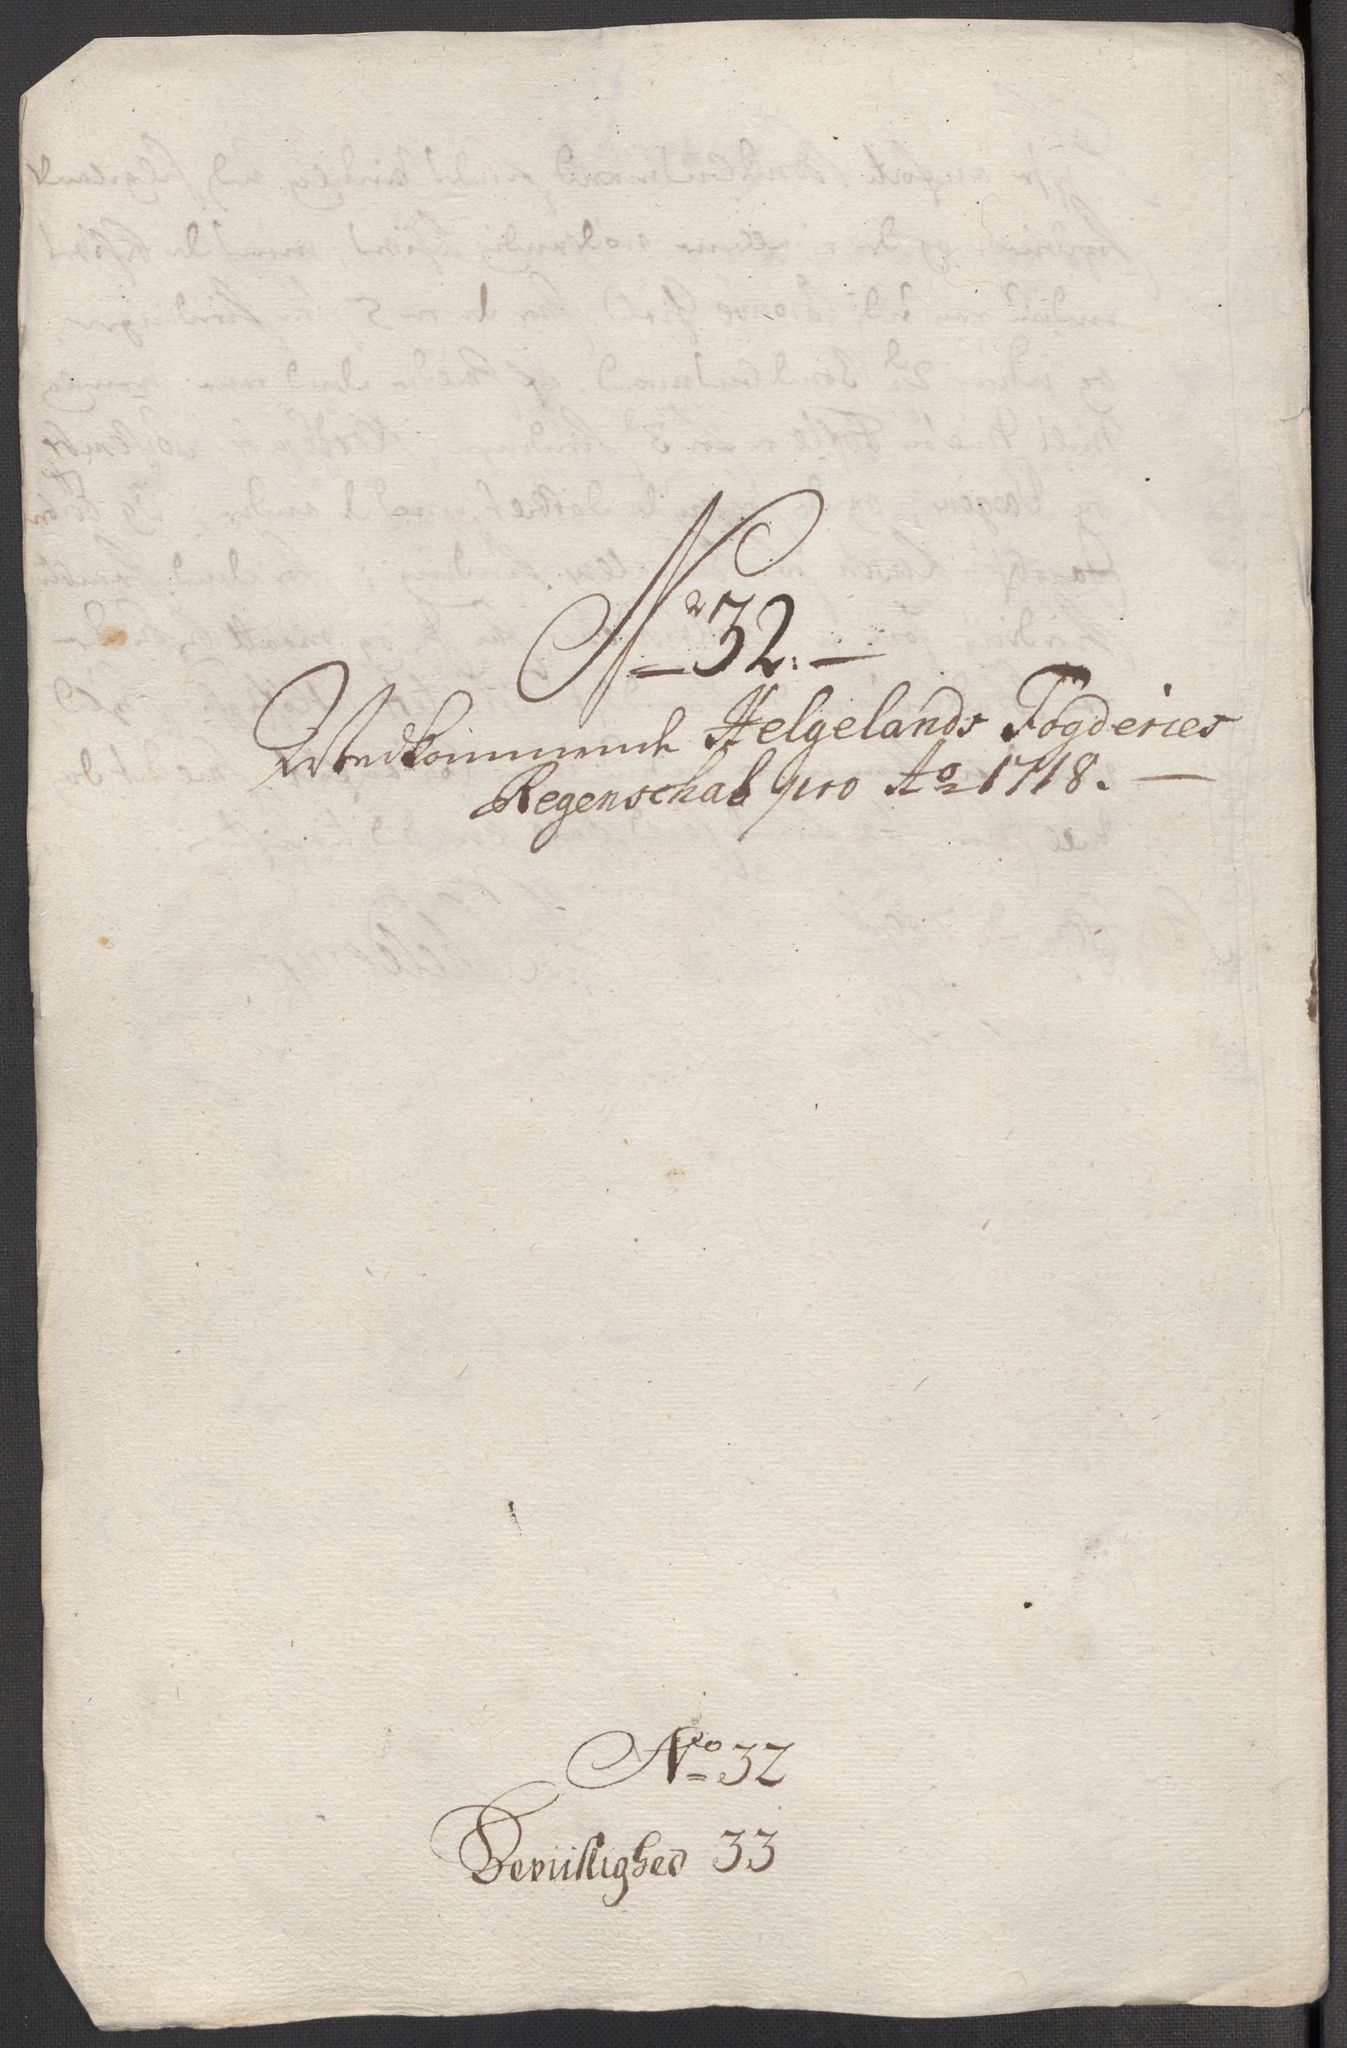 No 32.
Vedkommende Helgelands Fogderies
Regenschab pro Ao 1718.
No 32
Beviislighed 33